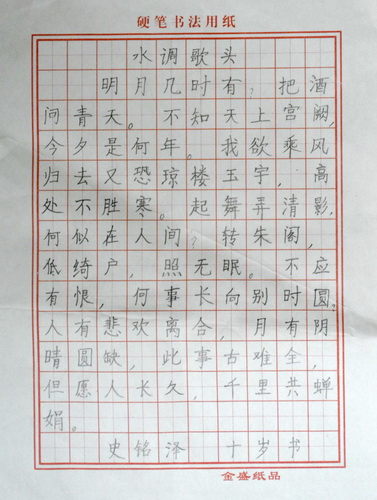 硬笔书法用纸
水调歌头
明月几时有?把酒
问青天。不知天上宫阙,
今夕是何年。我欲乘风
归去又恐琼楼玉宇,高
处不胜寒。起舞弄清影,
何似在人间?转朱阁,
低绮户,照无眠。不应
有恨,何事长向别时圆。
人有悲欢离合,月有阴
晴圆缺,此事古难全,
但愿人长久,千里共蝉
娟。
史铭泽 十岁书
金盛纸品